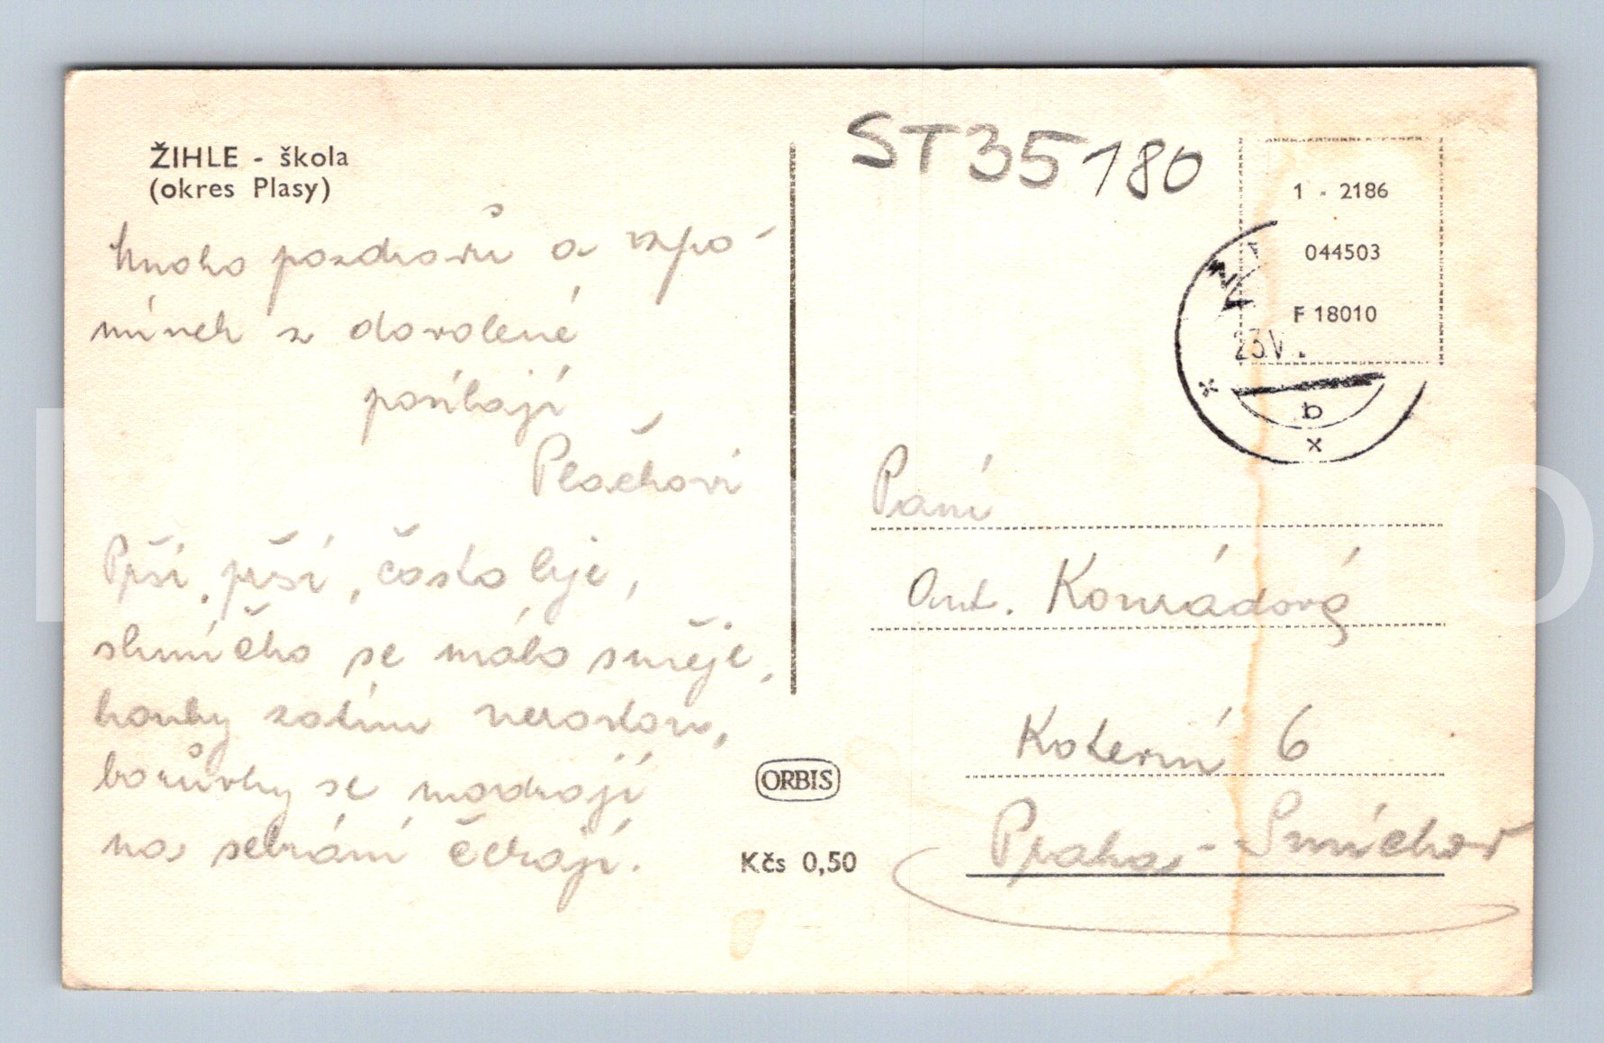 ŽIHLE - škola
(okres Plasy)
Mnoho pozdravů a vzpo-
mínek z dovolené
posílají
Plachovi
Prší, prší, často lije,
sluníčko se málo směje,
houby zatím nerostou,
borůvky se modrají
na sebrání čekají.
ORBIS
Kčs 0,50
ST35180
1 - 2186
044503
F 18010
23.V
b
Paní
Ant. Konrádová
Koterní 6
Praha - Smíchov